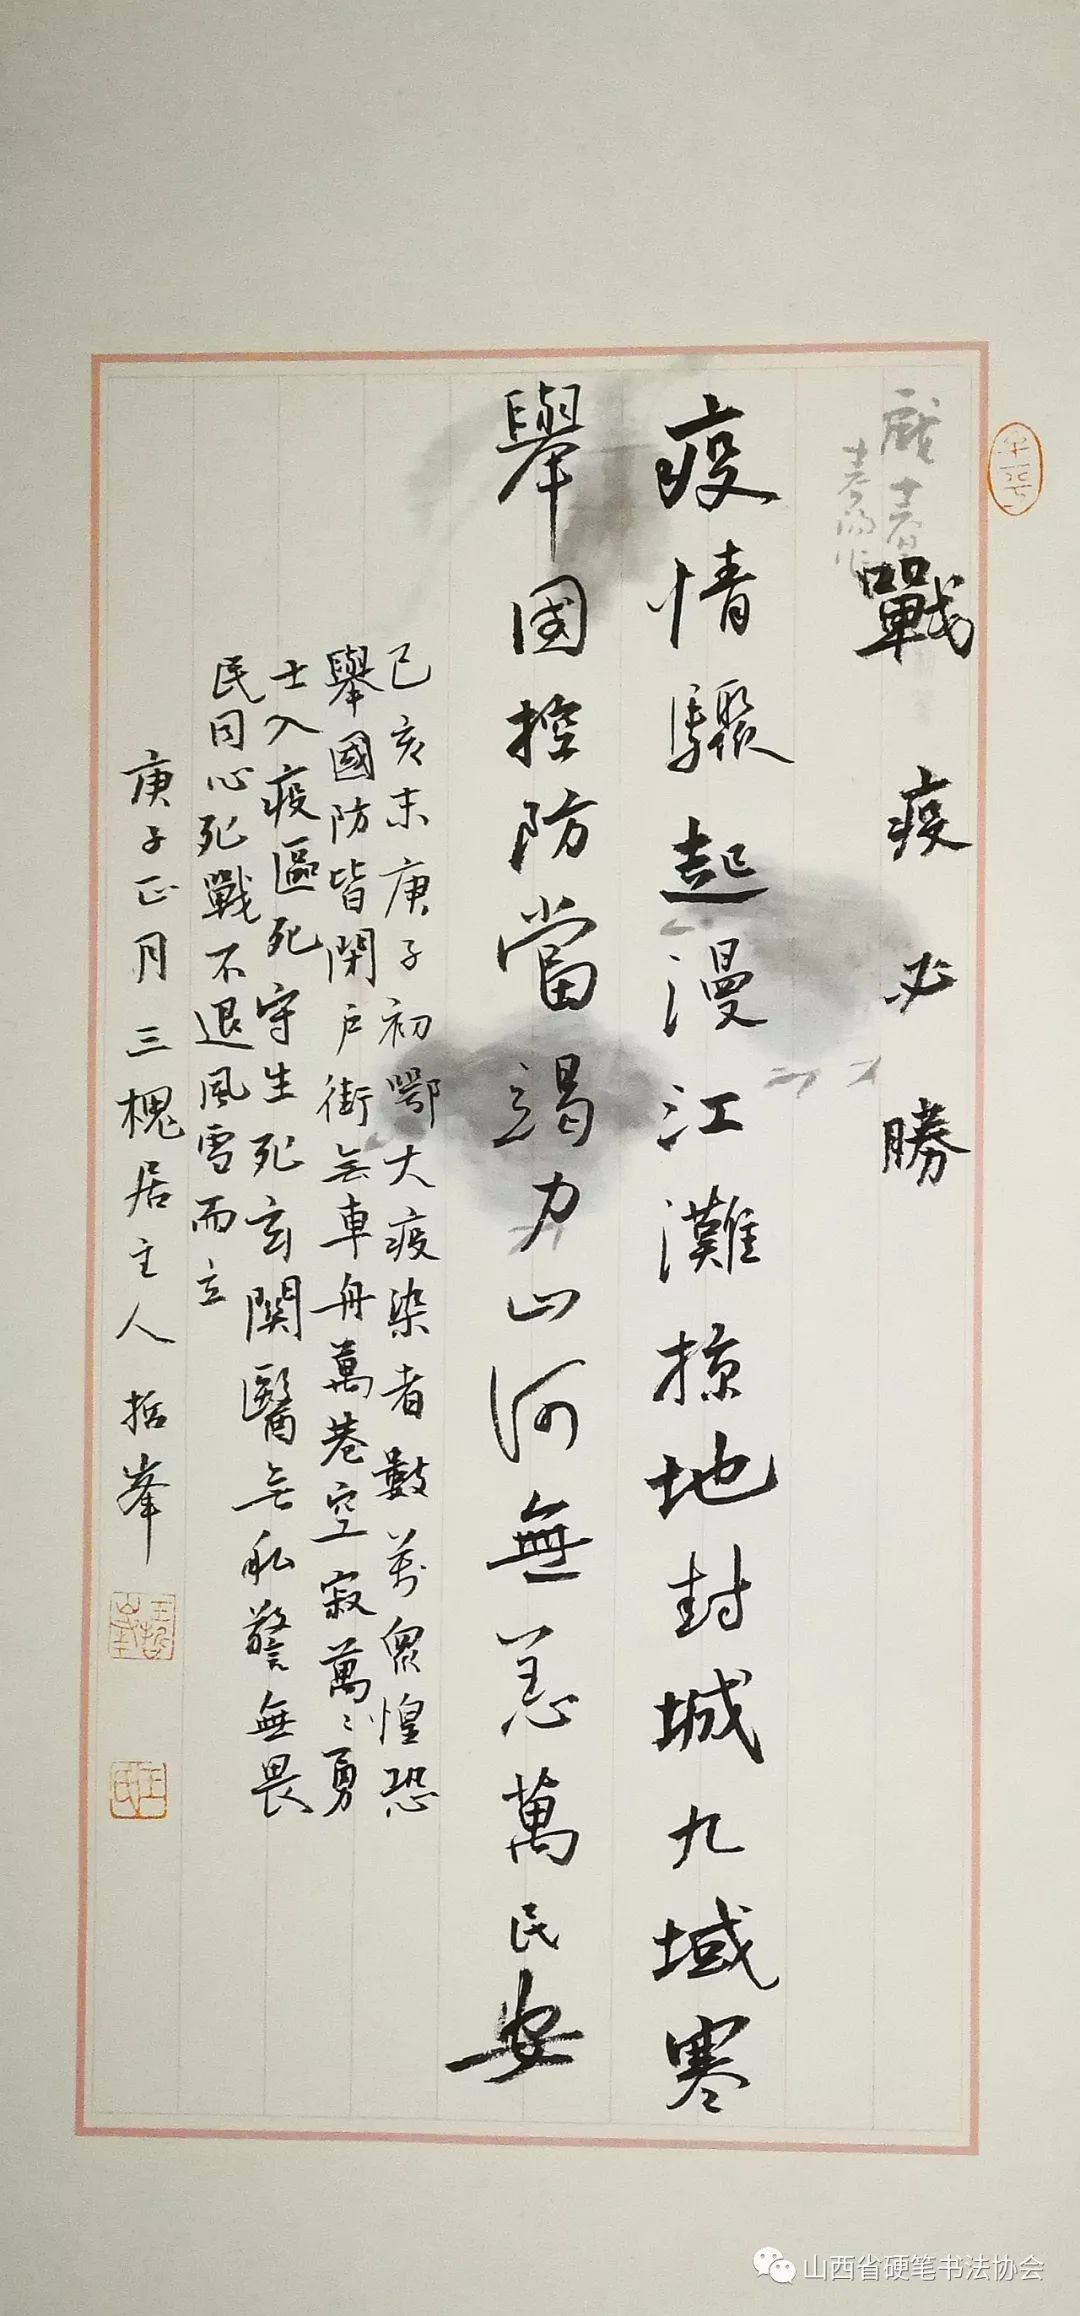 戰疫必勝
疫情驟起漫江灘掠地封城九域寒
舉国控防當竭力山河無恙萬民安
己亥末庚子初鄂大疫染者數萬眾惶恐
舉國防皆閉户街無車舟萬巷空寂萬〻勇
士入疫區死守生死玄関醫無私警無畏
民同心死戰不退風雪而立
庚子正月三槐居主人哲峯
山西省硬笔书法协会